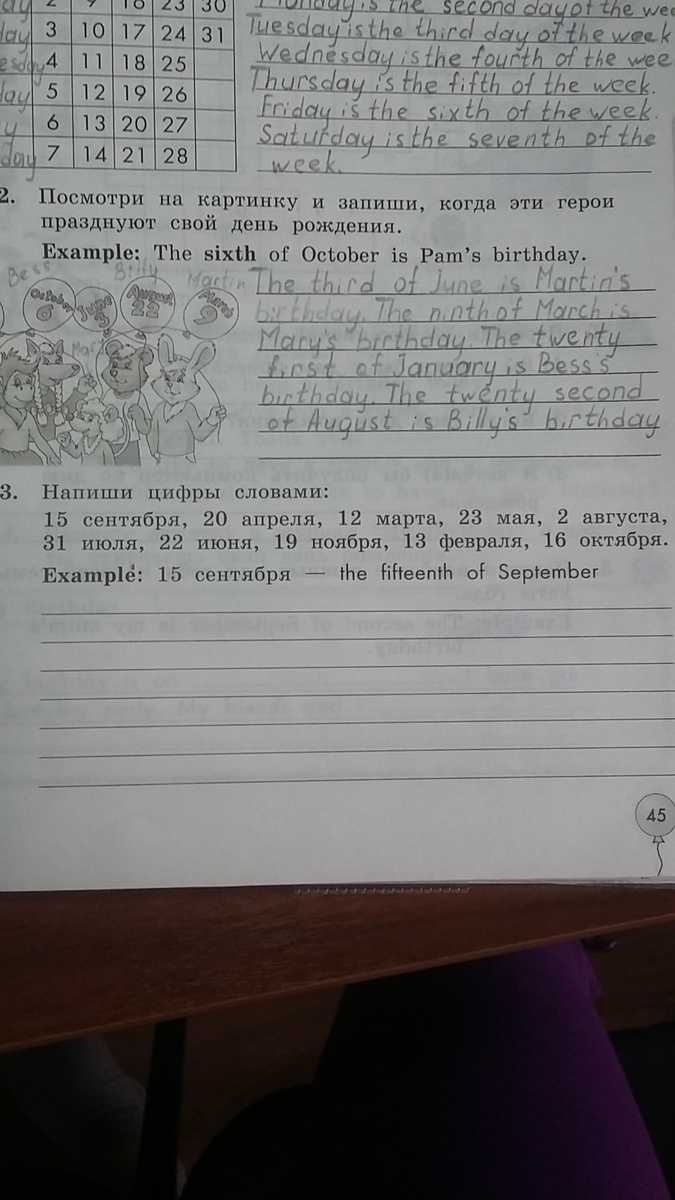 second day of the
3 10 17 24 31
Tuesday is the third day of the week
4 11 18 25
Wednesday is the fourth of the wee
5 12 19 26
Thursday is the fifth of the week.
6 13 20 27
Friday is the sixth of the week.
7 14 21 28
Saturday is the seventh of the
week.
2. Посмотри на картинку и запиши, когда эти герои
празднуют свой день рождения.
Example: The sixth of October is Pam's birthday.
Bess Billy Martin
October 6
June 3
August 22
March 9
The third of June is Martin's
birthday. The ninth of March is
Mary's birthday. The twenty
first of January is Bess's
birthday. The twenty second
of August is Billy's birthday
3. Напиши цифры словами:
15 сентября, 20 апреля, 12 марта, 23 мая, 2 августа,
31 июля, 22 июня, 19 ноября, 13 февраля, 16 октября.
Example: 15 сентября — the fifteenth of September
45